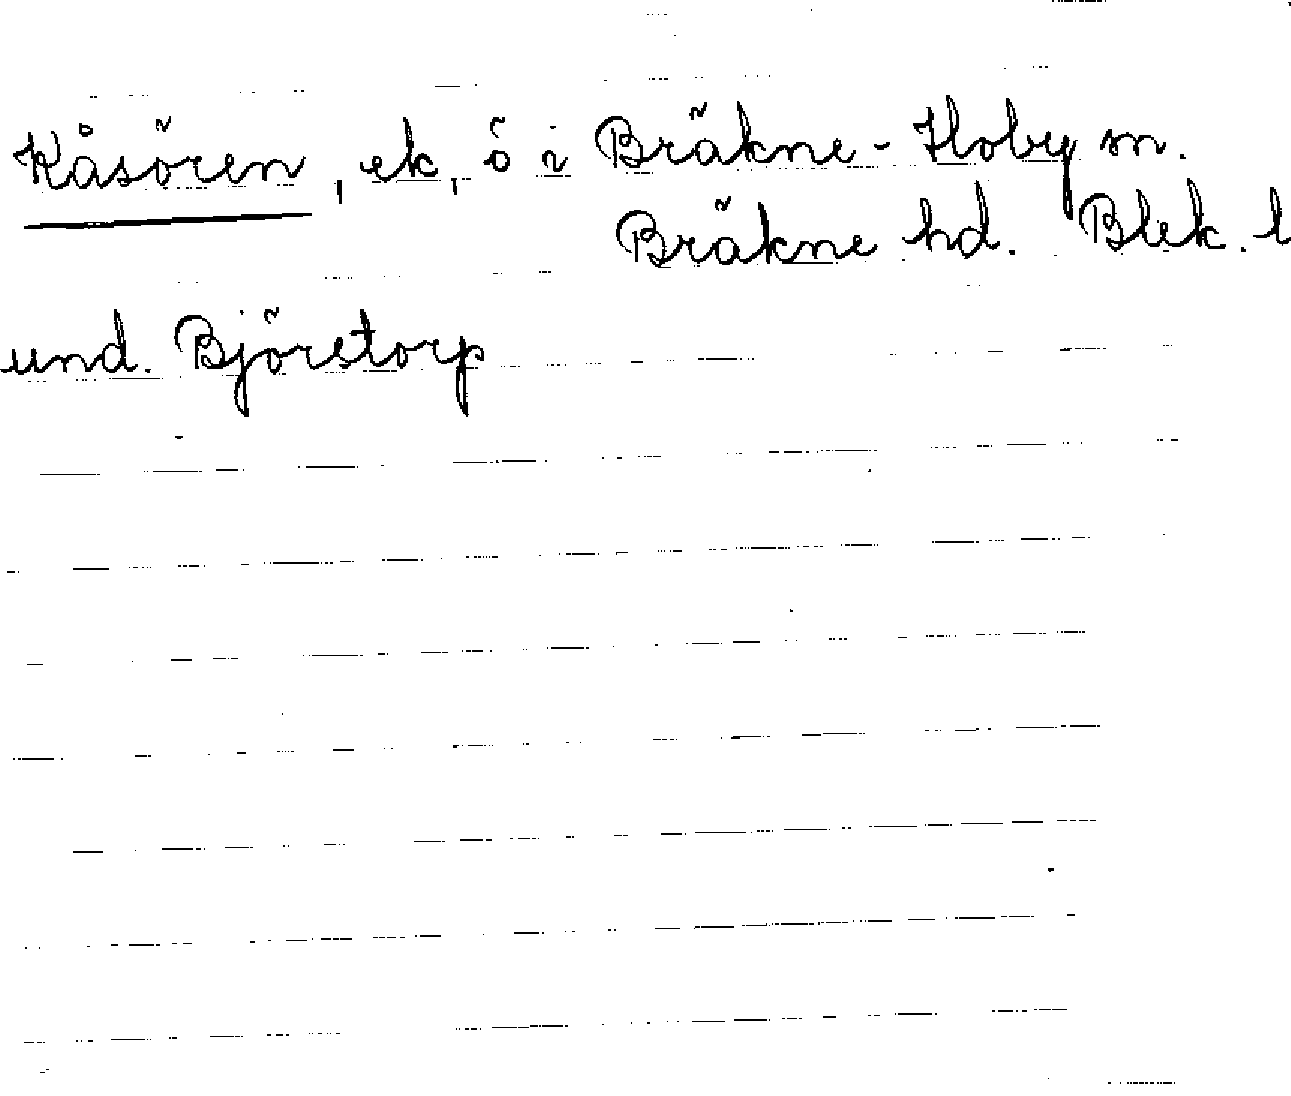 Kåsören, ek, ö i Bräkne-Hoby sn.
Bräkne hd. Blek. l
und. Björstorp